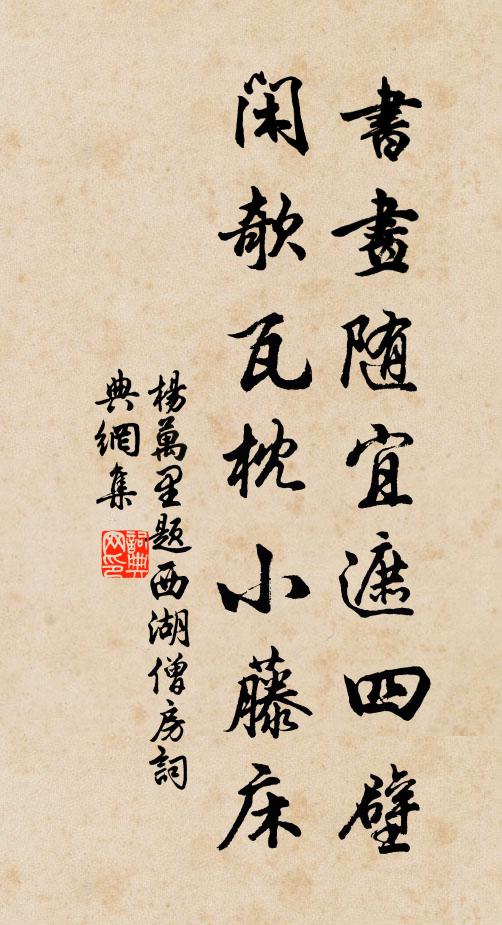 書畫随宜遮四壁
閑欹瓦枕小藤床
楊萬里題西湖僧房詞
典網集
詞典
网印